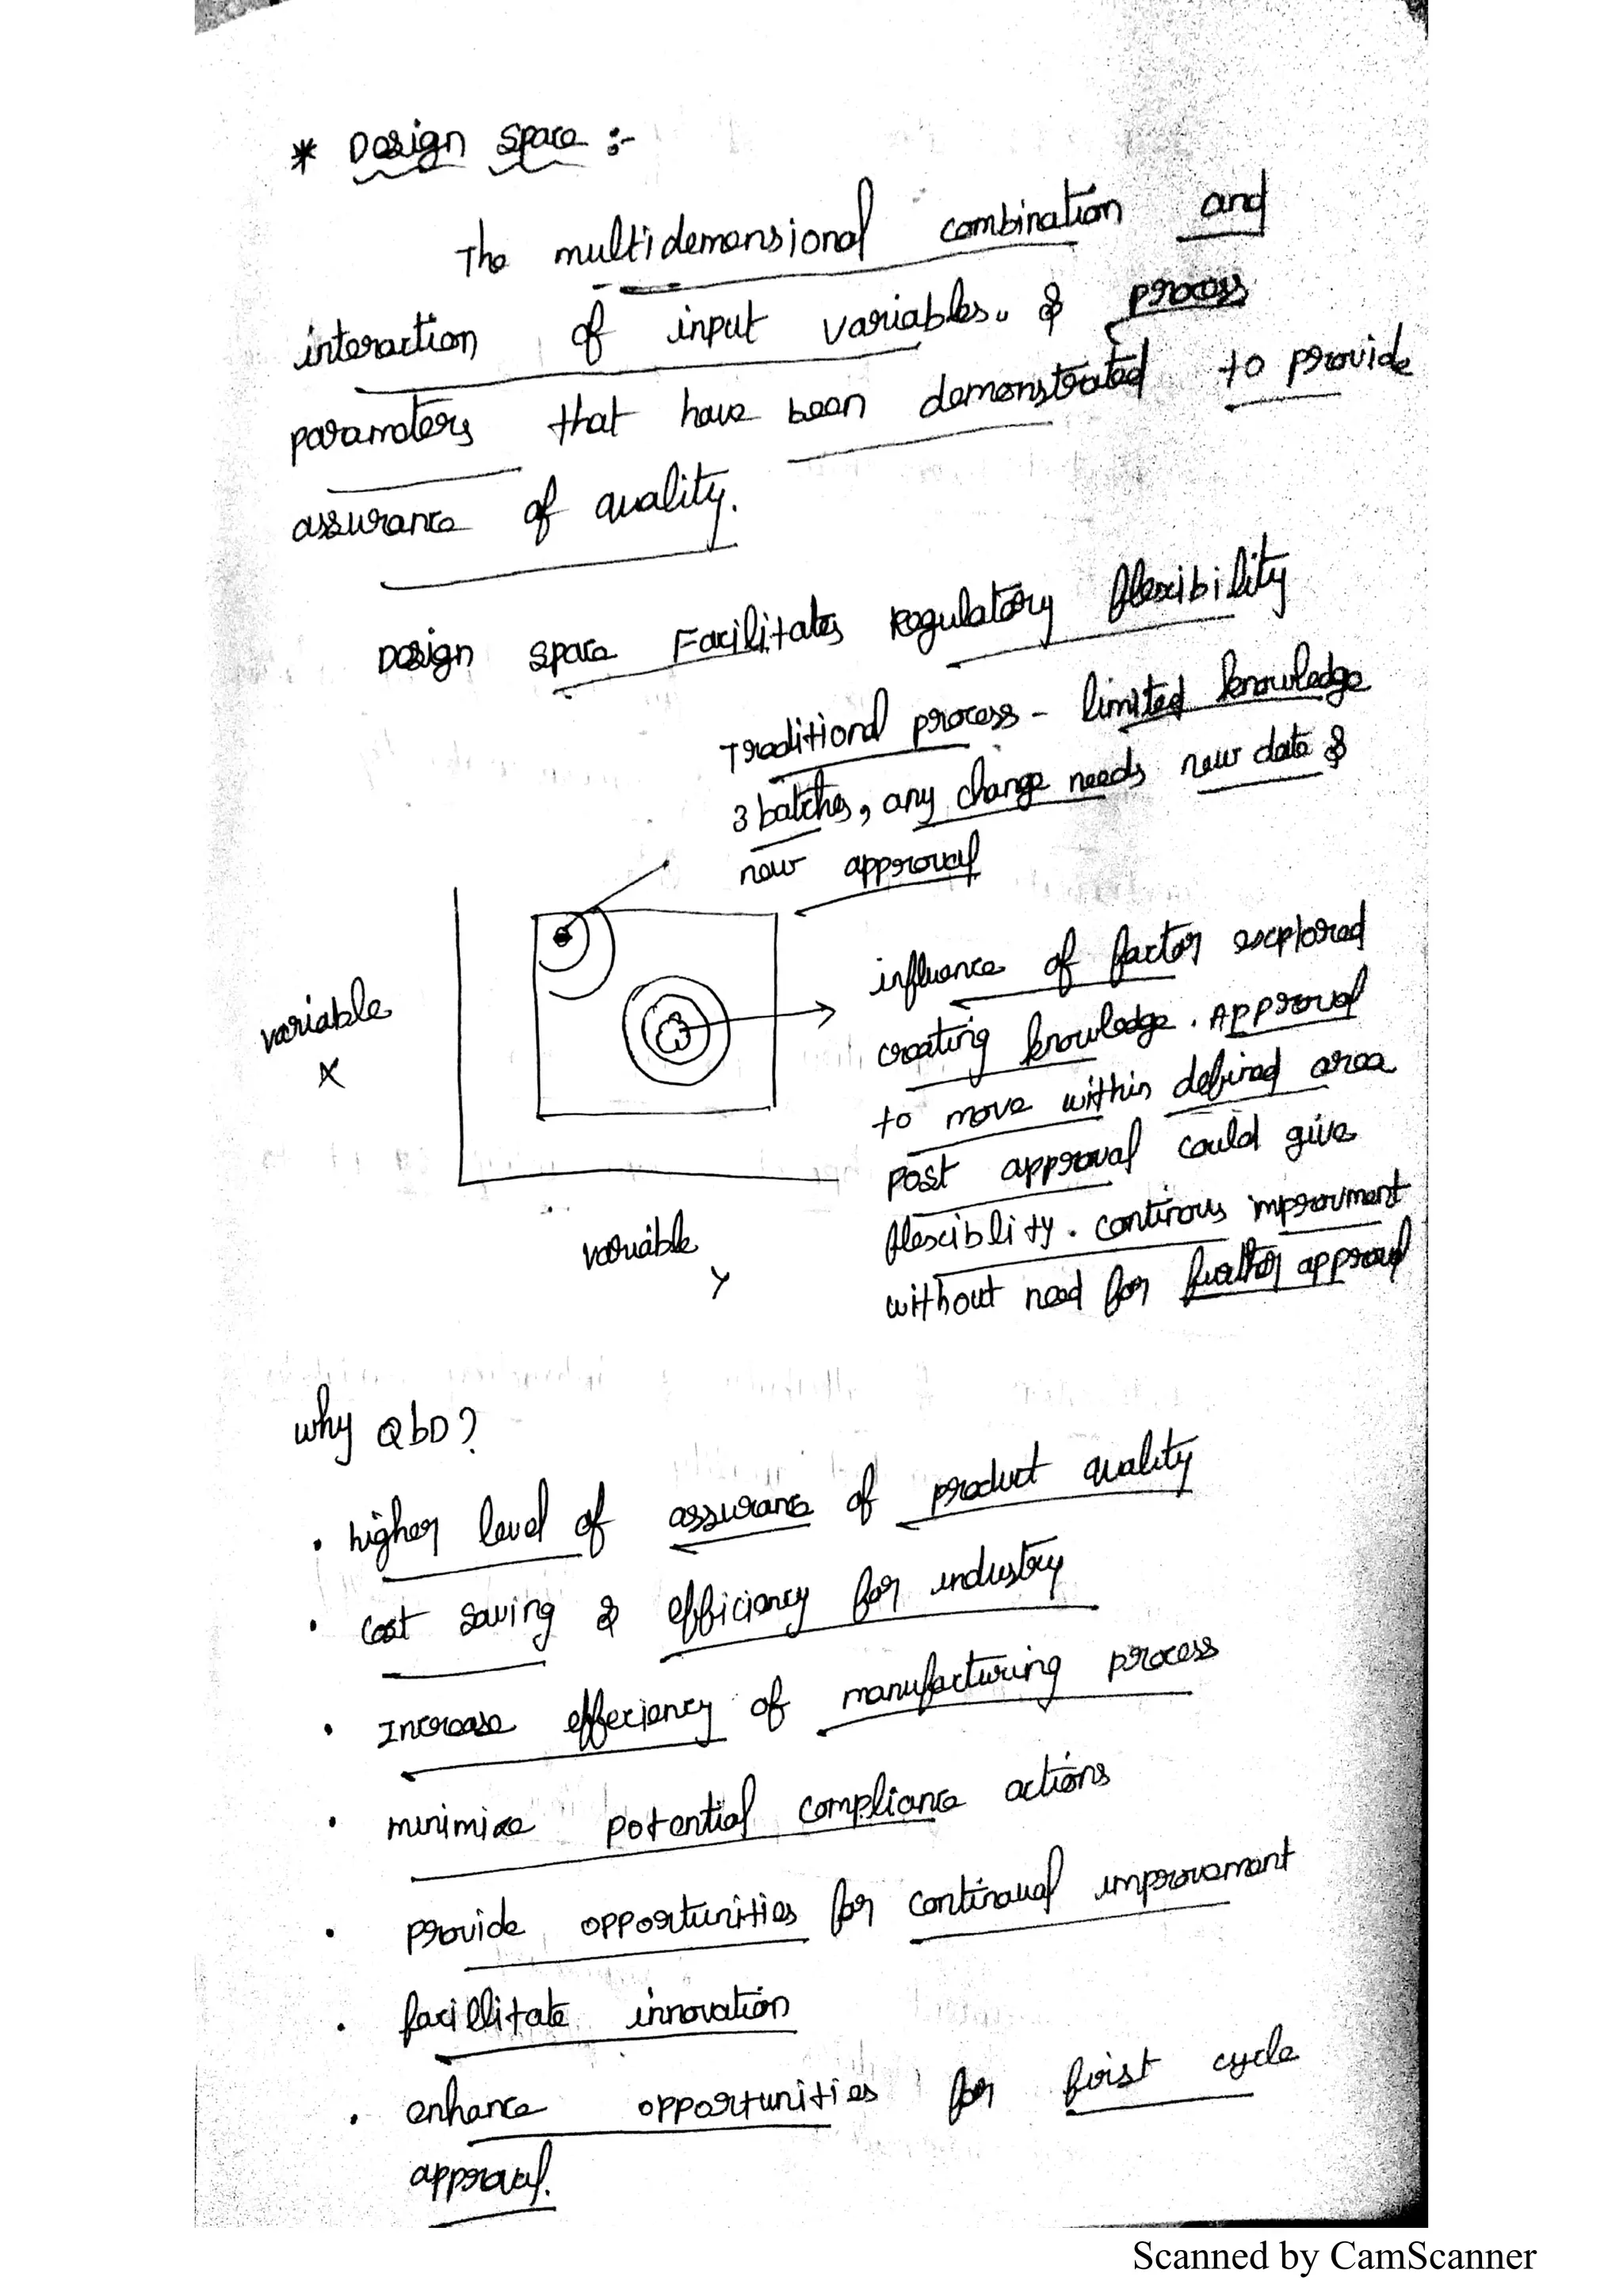 * Design space :-
The multidemensional combination and
interaction of input variables. & process
parameters that have been demonstrated to provide
assurance of quality.
Design space Facilitates Regulatory flexibility
Traditional process - limited knowledge
3 batches, any change needs new data &
new approval
influence of factor explored
creating knowledge. Approval
to move within defined area
post approval could give
flexiblity. continous improvment
without need for further approval
variable
X
variable
Y
why QbD?
• higher level of assurance of product quality
• cost saving & efficiency for industry
• Increase effeciency of manufacturing process
• minimize potential compliance actions
• provide opportunities for continual improvement
• facillitate innovation
• enhance opportunities for first cycle
approval.
Scanned by CamScanner